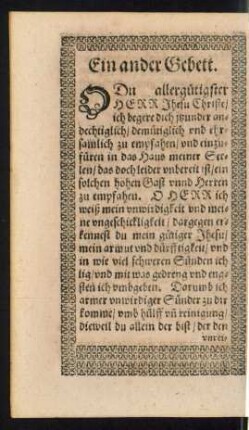 Ein ander Gebett.
O Du allergütigster
HERR Jhesu Christe/
ich begere dich itzunder an-
dechtiglich/ demütiglich vnd ehr-
samlich zu empfahen/ vnd einzu-
füren in das Haus meiner See-
len/ das doch leider vnbereit ist/ ein
solchen hohen Gast vnnd Herren
zu empfahen. O HERR ich
weiß mein vnwirdigkeit vnd mei-
ne vngeschickligkeit/ dargegen er-
kennest du mein gütiger Jhesu/
mein armut vnd dürfftigkeit/ vnd
in wie viel schweren Sünden ich
lig/ vnd mit was gedreng vnd eng-
sten ich vmbgeben. Darumb ich
armer vnwirdiger Sünder zu dir
komme/ vmb hülff vñ reinigung/
dieweil du allein der bist/ der den
vnrei-